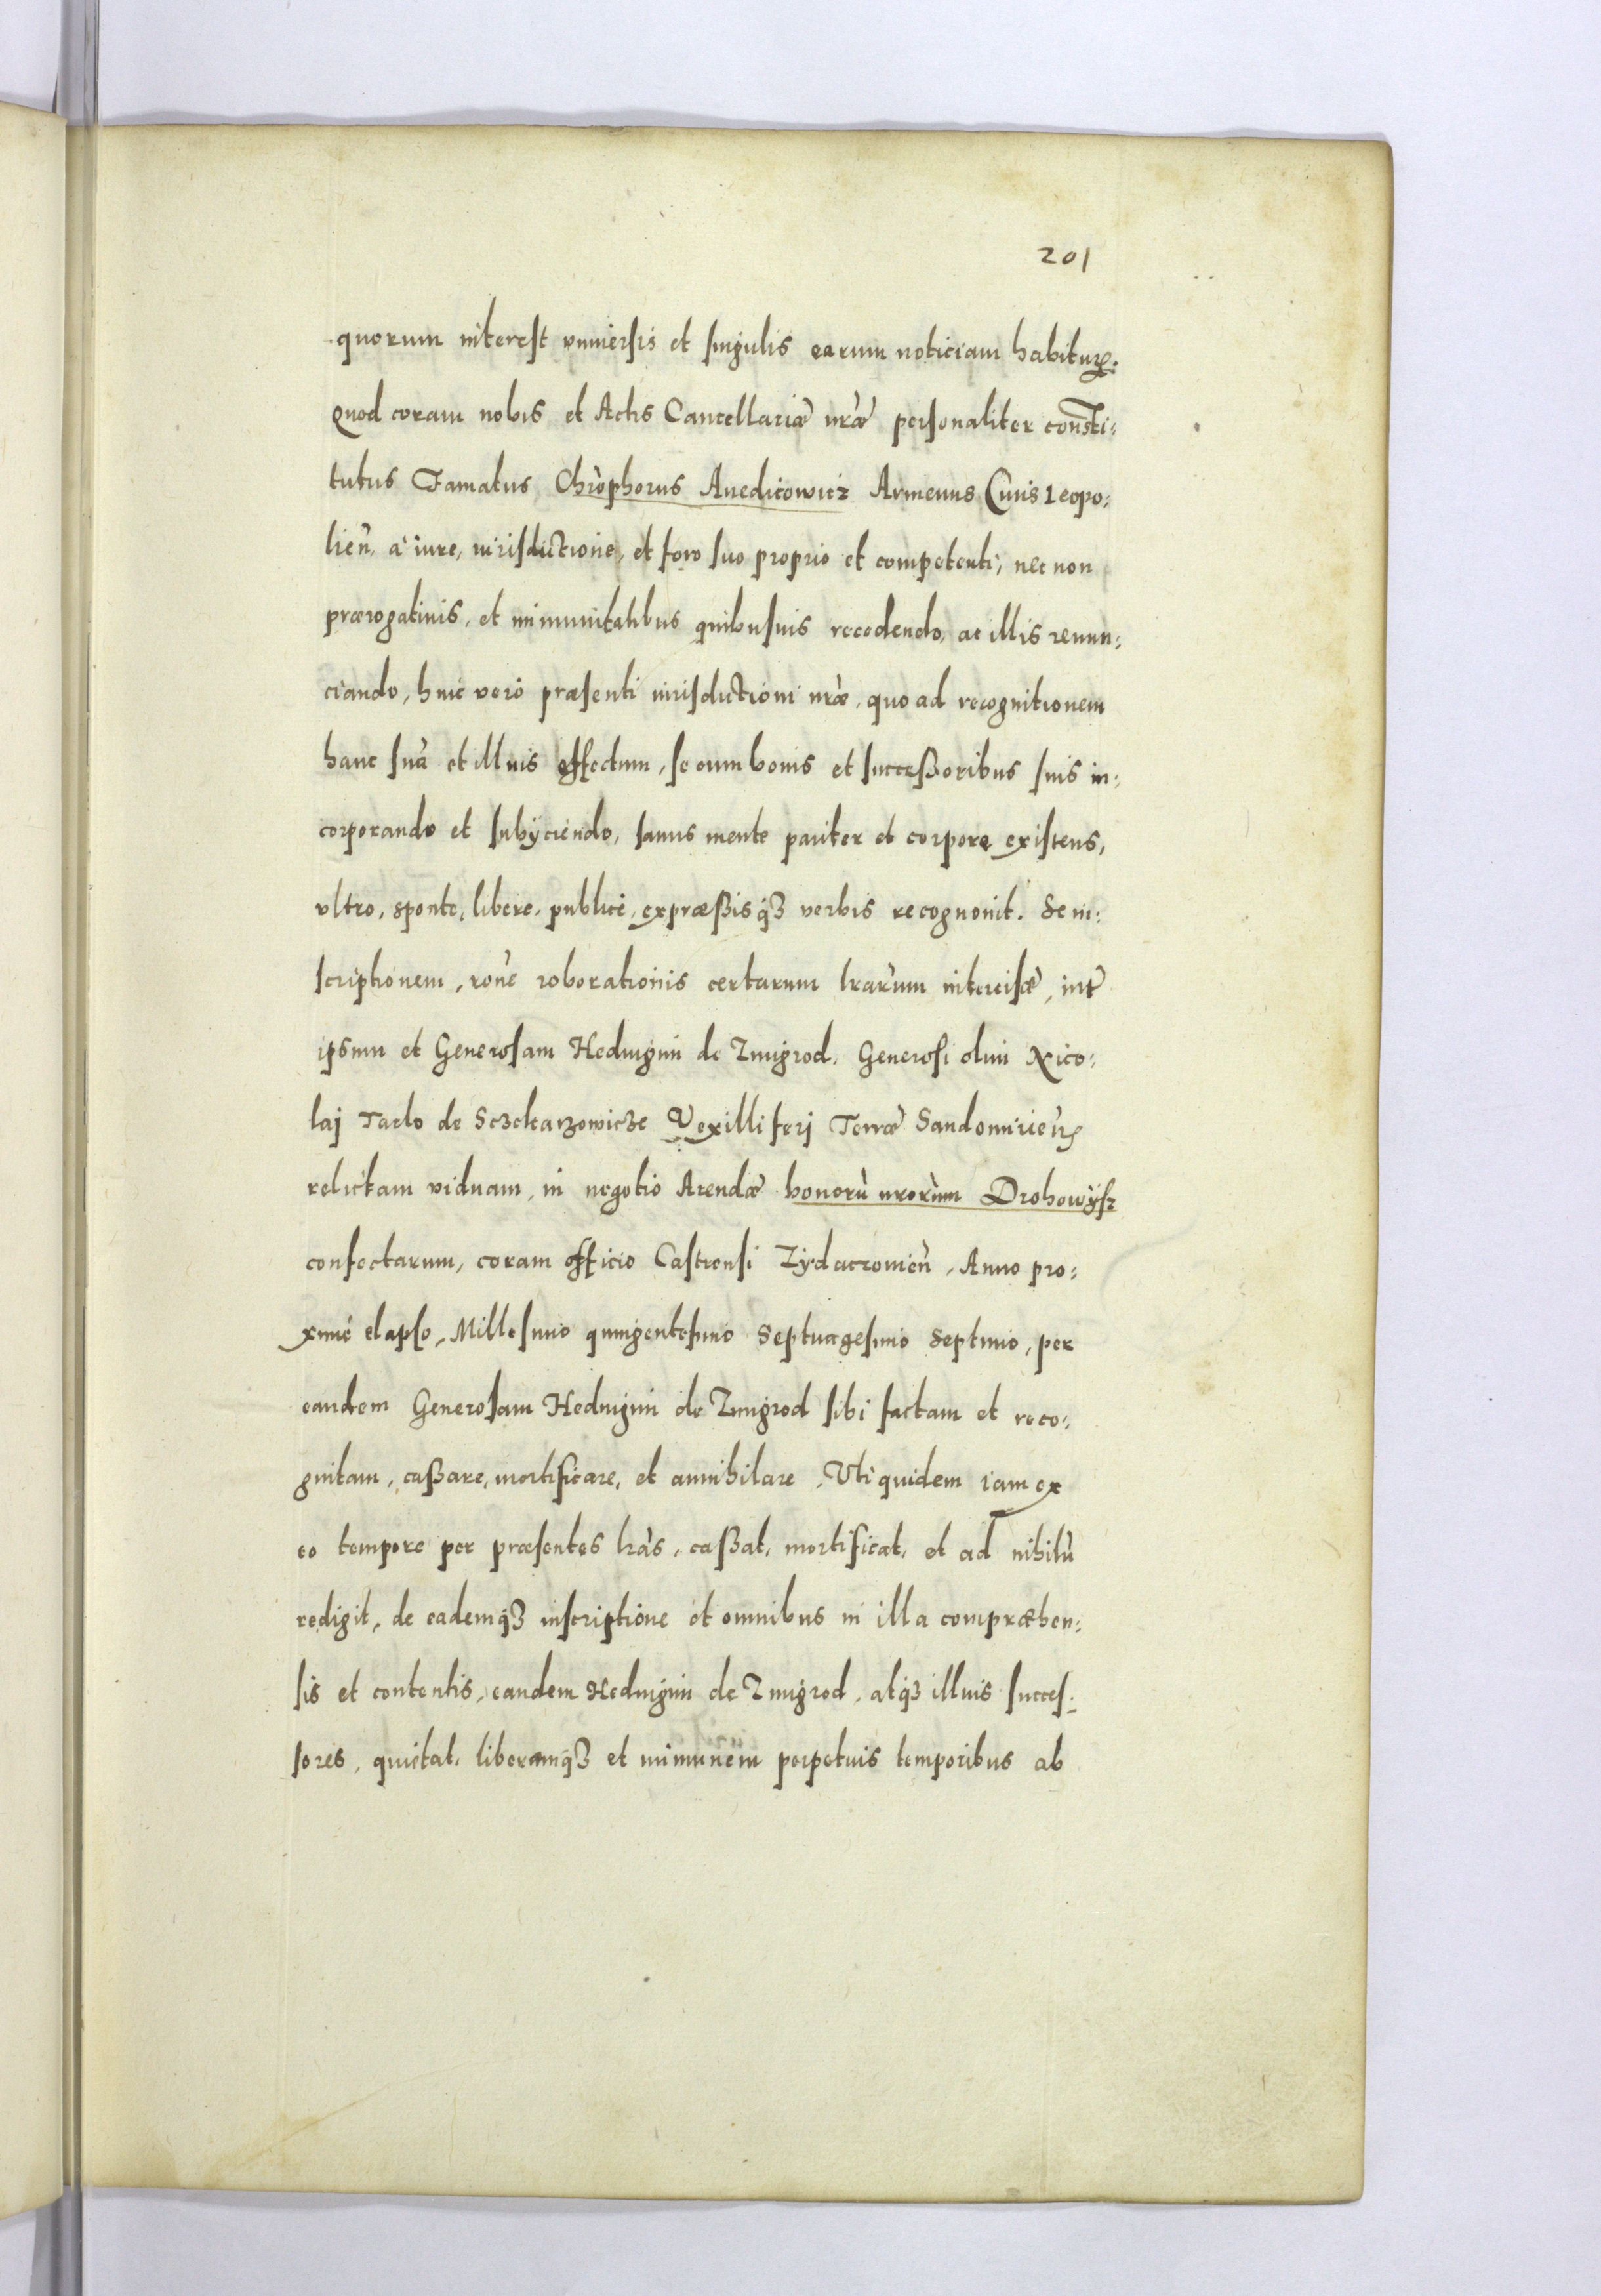 201
quorum interest vniuersis et singulis earum noticiam habiturꝝ:
Quod coram nobis et Actis Cancellariæ nr̃æ personaliter consti:
tutus Famatus Chr̃ophorus Auedicowicz Armenus Ciuis Leopo:
lien̄. à iure, iurisdictione, et foro suo proprio et competenti, nec non
prærogatiuis, et immunitatibus quibusuis recedendo, ac illis renun:
ciando, huic verò præsenti iurisdictioni nr̃æ, quo ad recognitionem
hanc suā et illius effectum, se cum bonis et successoribus suis in:
corporando et subÿciendo, sanus mente pariter et corpore existens,
vltro, sponte, libere, publicè, expræssisq̃ꝫ verbis recognouit. Se in:
scriptionem, rōne roborationis certarum lr̃arum intercisæ, int̃
ipsum et Generosam Heduigim de Zmigrod. Generosi olim Nico:
laj Tarlo de Sczekarzowicze Vexilliferj Terræ Sandomirien̄
relictam viduam, in negotio Arendæ bonorū nr̃orum Drohowÿsz
confectarum, coram officio Castrensi Zÿdaczouien̄, Anno pro:
ximè elapso, Millesimo quingentesimo Septuagesimo Septimo, per
eandem Generosam Heduigim de Zmigrod sibi factam et reco:
gnitam, cassare, mortificare, et annihilare, Vti quidem iam ex
eo tempore per præsentes lr̃as, cassat, mortificat, et ad nihilū
redigit, de eademq̃ꝫ inscriptione et omnibus in illa compræhen:
sis et contentis, eandem Heduigim de Zmigrod, atq̃ꝫ illius succes:
sores, quietat, liberamq̃ꝫ et immunem perpetuis temporibus ab